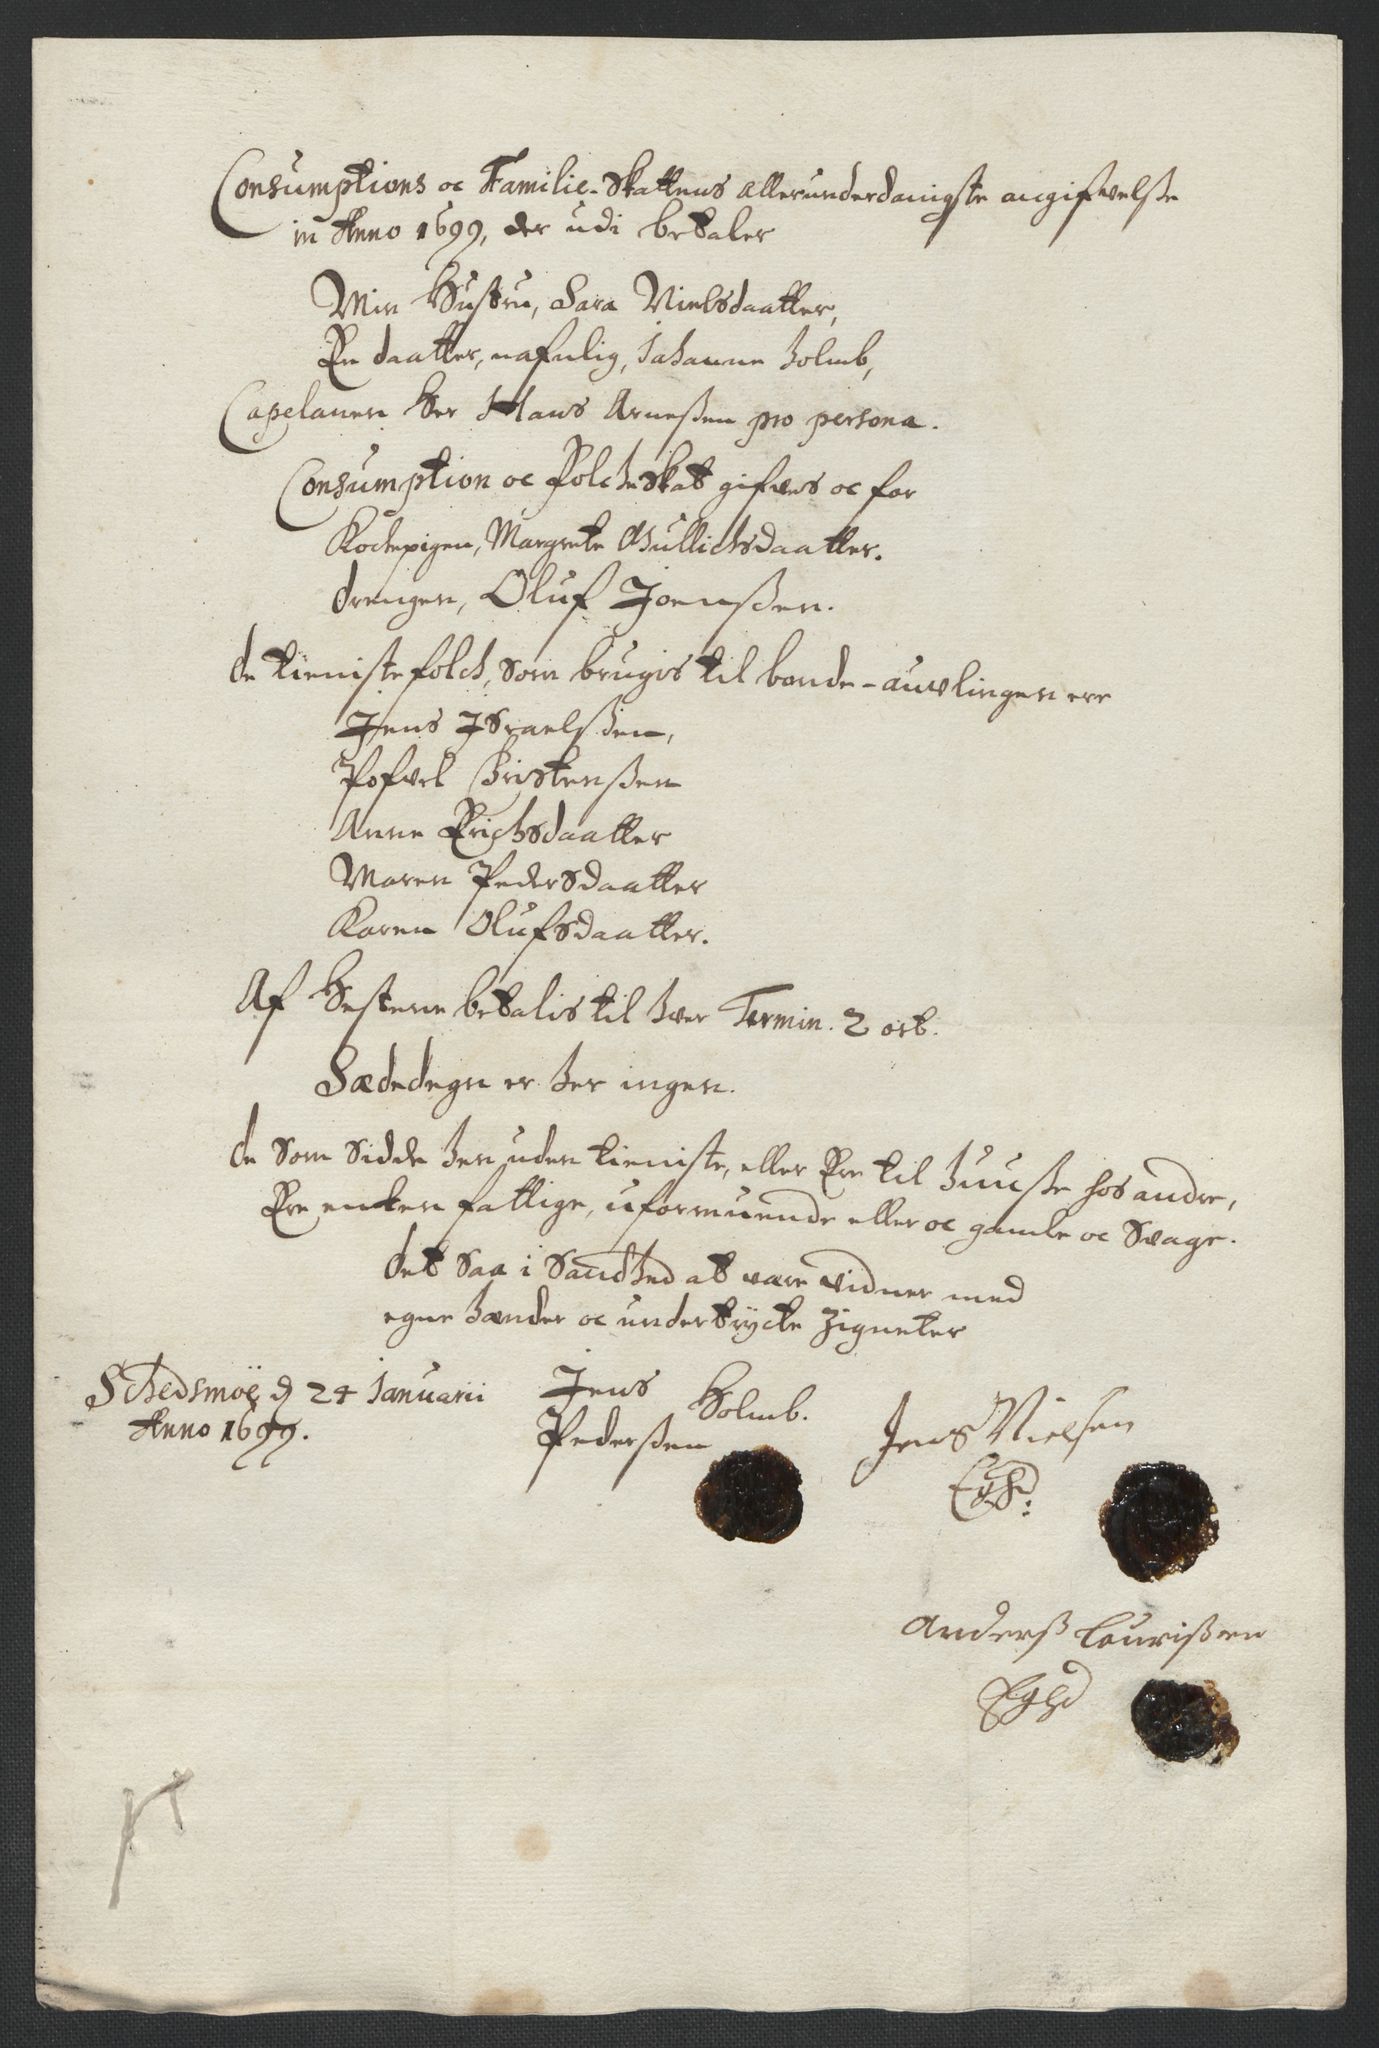 Consumptions oc Familie-Skattens allerunderdanigste angifvelsse
in Anno 1699, der udi betaler
Min Hustru, Sara Nielsdaatter,
En daatter, nafnlig, Johanne Holmb,
Capelanen Her Hans Arnessen pro persona.
Consumption oc Folcheskat gifves oc for
Kockepigen, Margrete Gullichsdaatter.
drengen, Oluf Joenssen.
de tieniste folch, som brugis til bonde-auvlingen ere
Jens Israelssen,
Pofvel Christenssen
Anne Erichsdaatter
Maren Pedersdaatter
Karen Olufsdaatter.
Af Hestene betalis til hver Termin. 2 ort.
Sædedegn er her ingen.
de som sidde hen uden tieniste, eller Ere til huusse hos andre,
Ere enten fattige, uformuende eller oc gamle oc svage.
det saa i Sandhed at være vidner med
egne hænder oc undertrycte Zigneter
Schedsmoe, d 24 Januarii
Anno 1699.
Jens
Pederssen Holmb.
Jens Nielsen
Eghd:
Anderss Laurissen
Eghd